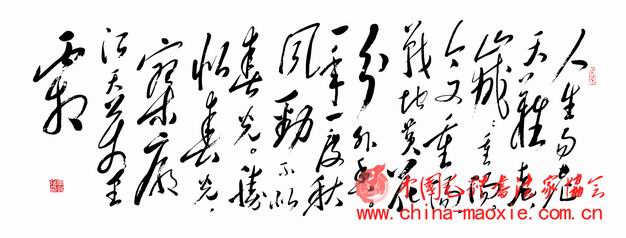 人生易老
天難老。
歲歲重陽。
今又重陽，
戰地黄花
分外香。
一年一度秋
風勁不似
春光。勝
似春光，
寥廓
江天万里
霜
中国毛体书法家協会
www.china-maoxie.com.cn